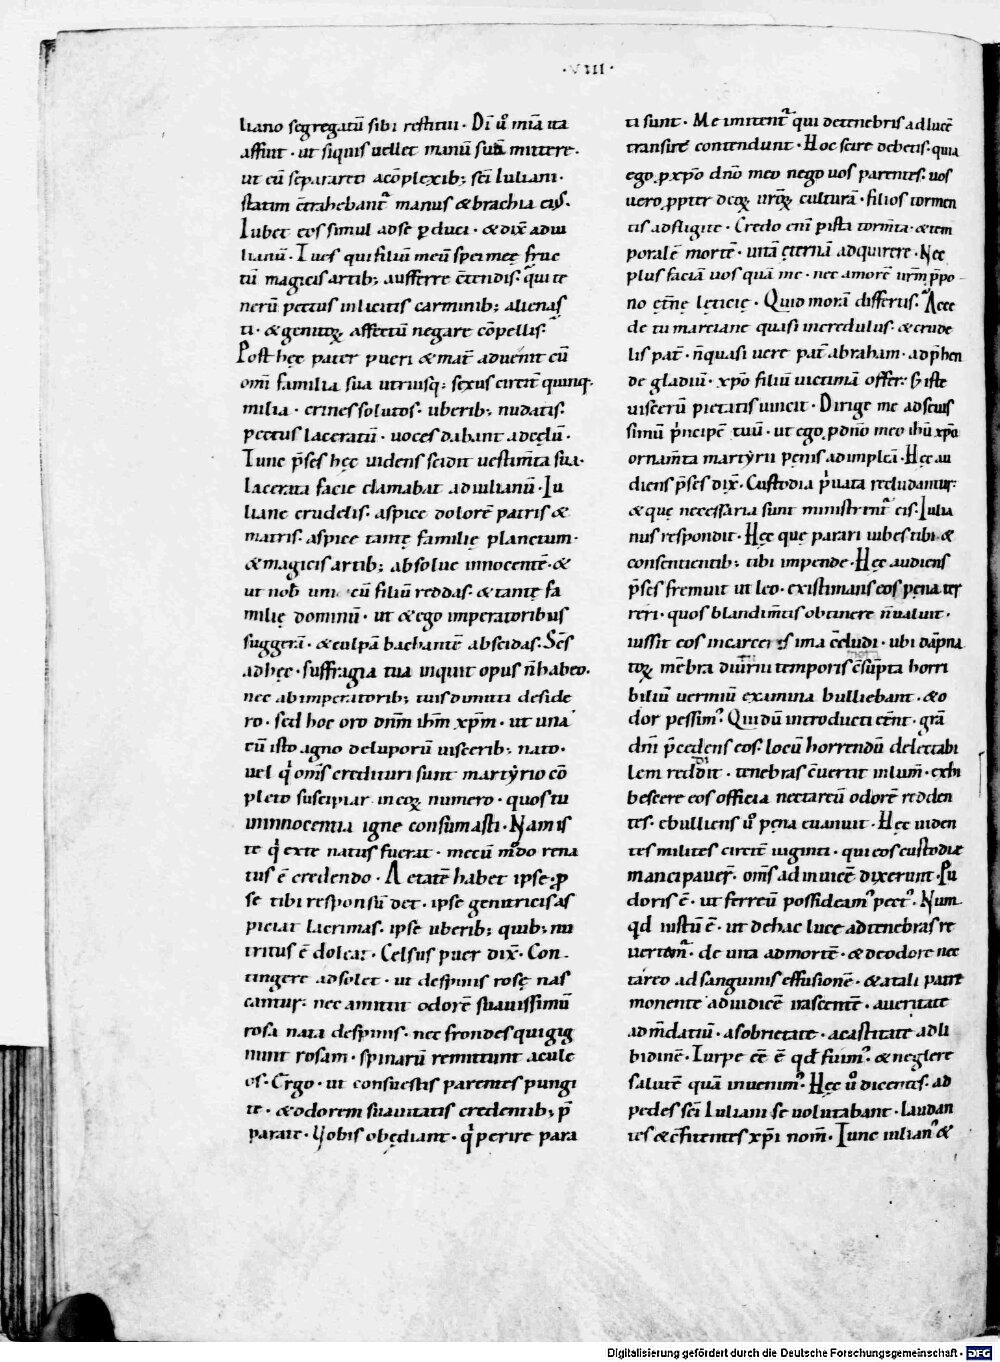 ·VIII·
liano segregatū sibi restitui · Dī ů mīa ita
affuit · ut siquis uellet manū suā mittere ·
ut eū separaret a cōplexib; sc̄i Iuliani ·
statim c̄trahebant᷑ manus & brachia eiꝰ.
Iubet eos simul adse ꝑduci · & dix̄ adiu
lianū · Tu es qui filiū meū spei meę fruc
tū magicis artib; aufferre c̄tendis · qui te
nerū pectus inlicitis carminib; alienas
ti · & genitoꝝ affectū negare cōpellis ·
Post hęc pater pueri & mat̄ aduenit cū
om̄i familia sua utriusq; sexus circit̄ quinq;
milia · crines solutos · uberib; nudatis ·
pectus laceratū · uoces dabant adcęlū ·
Tunc p̄ses hęc uidens scidit uestim̄ta sua ·
lacerata facie clamabat adiulianū · Iu
liane crudelis · aspice dolorē patris &
matris · aspice tantę familię planctum ·
& magicis artib; absolue innocentē · &
ut nob̄ uni cū filiū reddas · & tantę fa
milię dominū · ut & ego imperatoribus
suggerā · & culpā bachantē abscidas · Sc̄s
adhęc · suffragia tua inquit opus n̄ habeo ·
nec abimperatorib; tuis dimitti deside
ro · sed hoc oro dn̄m ihm̄ xp̄m · ut una
cū isto agno deluporū uiscerib; nato ·
uel qͥ om̄s credituri sunt martyrio cō
pleto suscipiar in eoꝝ numero · quos tu
ininnocentia igne consūmasti · Nam is
te qͥ exte natus fuerat · mecū m̊do rena
tus ē credendo · Aetatē habet ipse · ꝓ
se tibi responsū det · ipse genitricis as
piciat lacrimas · ipse uberib; quib; nu
tritus ē doleat · Celsus puer dix̄ · Con
tingere adsolet · ut despinis rosę nas
cantur · nec amittit odorē suauissimū
rosa nata despinis · nec frondes qui gig
nunt rosam · spinarū remittunt acule
os · Ergo · ut consuestis parentes pungi
te · & odorem suauitatis credentib; p̄
parate · Uobis obędiant · qͥ perire para
ti sunt · Me imitent᷑ qui detenebris adlucē
transire contendunt · Hoc scire debetis · quia
ego ꝓ xp̄o dn̄o meo nego uos parentes · uos
uero ꝓpter deoꝝ ur̄oꝝ culturā · filios tormen
tis adfligite · Credo eni̅ p̄ ista torm̄ta · & tem
poralē mortē · uitā ęternā adquirere · Nec
plus faciā uos quā me · nec amorē ur̄m p̄po
no ęt̄nę lęticię · Quid morā differtis · Acce
de tu marciane quasi incredulus · & crude
lis pat̄ · n̄ quasi uere pat̄ abraham · adp̄hen
de gladiū · xp̄o filiū uictimā offer · si iste
uiscerū pietatis uincit · Dirige me adseuis
simū pͥncipē tuū · ut ego ꝓ dn̄o meo ihū xp̄o
ornam̄ta martyrii pęnis adimplēā · Hęc au
diens p̄ses dix̄ · Custodia pͥuata recludantur ·
& quę necessaria sunt ministrent᷑ eis · Iulia
nus respondit · Hęc quę parari iubes tibi &
consentientib; tibi impende · Hęc audiens
p̄ses fremuit ut leo · existimans eos pęna ter
reri · quos blandim̄tis obtinere n̄ ualuit ·
iussit eos incarceris ima c̄cludi · ubi dāpna
toꝝ mēbra diut̄ni temporis c̄sūpta horri
biliū uermiū examina bulliebant · & o
dor pessimꝰ · Qui dū introducti eēnt · gr̄a
dn̄i p̄cedens eos · locū horrendū delectabi
lem reddidit · tenebras c̄uertit in lum̄ · exhi
bescere eos officia nectareū odorē redden
tes · ebulliens ů pęna euanuit · Hęc uiden
tes milites circit̄ uiginti · qui eos custodie
mancipauer̄ · om̄s adinuicē dixerunt · Pu
doris ē · ut ferreū possideamꝰ pectꝰ · Num
qd̄ iustū ē · ut dehac luce adtenebras re
uertem᷑ · de uita admortē · & deodore nec
tareo adsanguinis effusionē · & atali patre
monente adiudicē nascentē · aueritate
adm̄datiū · asobrietate · acastitate adli
bidinē · Turpe eē ē qd̄ fuimꝰ · & neglere
salutē quā inuenimꝰ · Hęc ů dicentes · ad
pedes sc̄i Iuliani se uolutabant · laudan
tes & c̄fitentes xp̄i nom̄ · Tunc iulianꝰ &
Digitalisierung gefördert durch die Deutsche Forschungsgemeinschaft - DFG